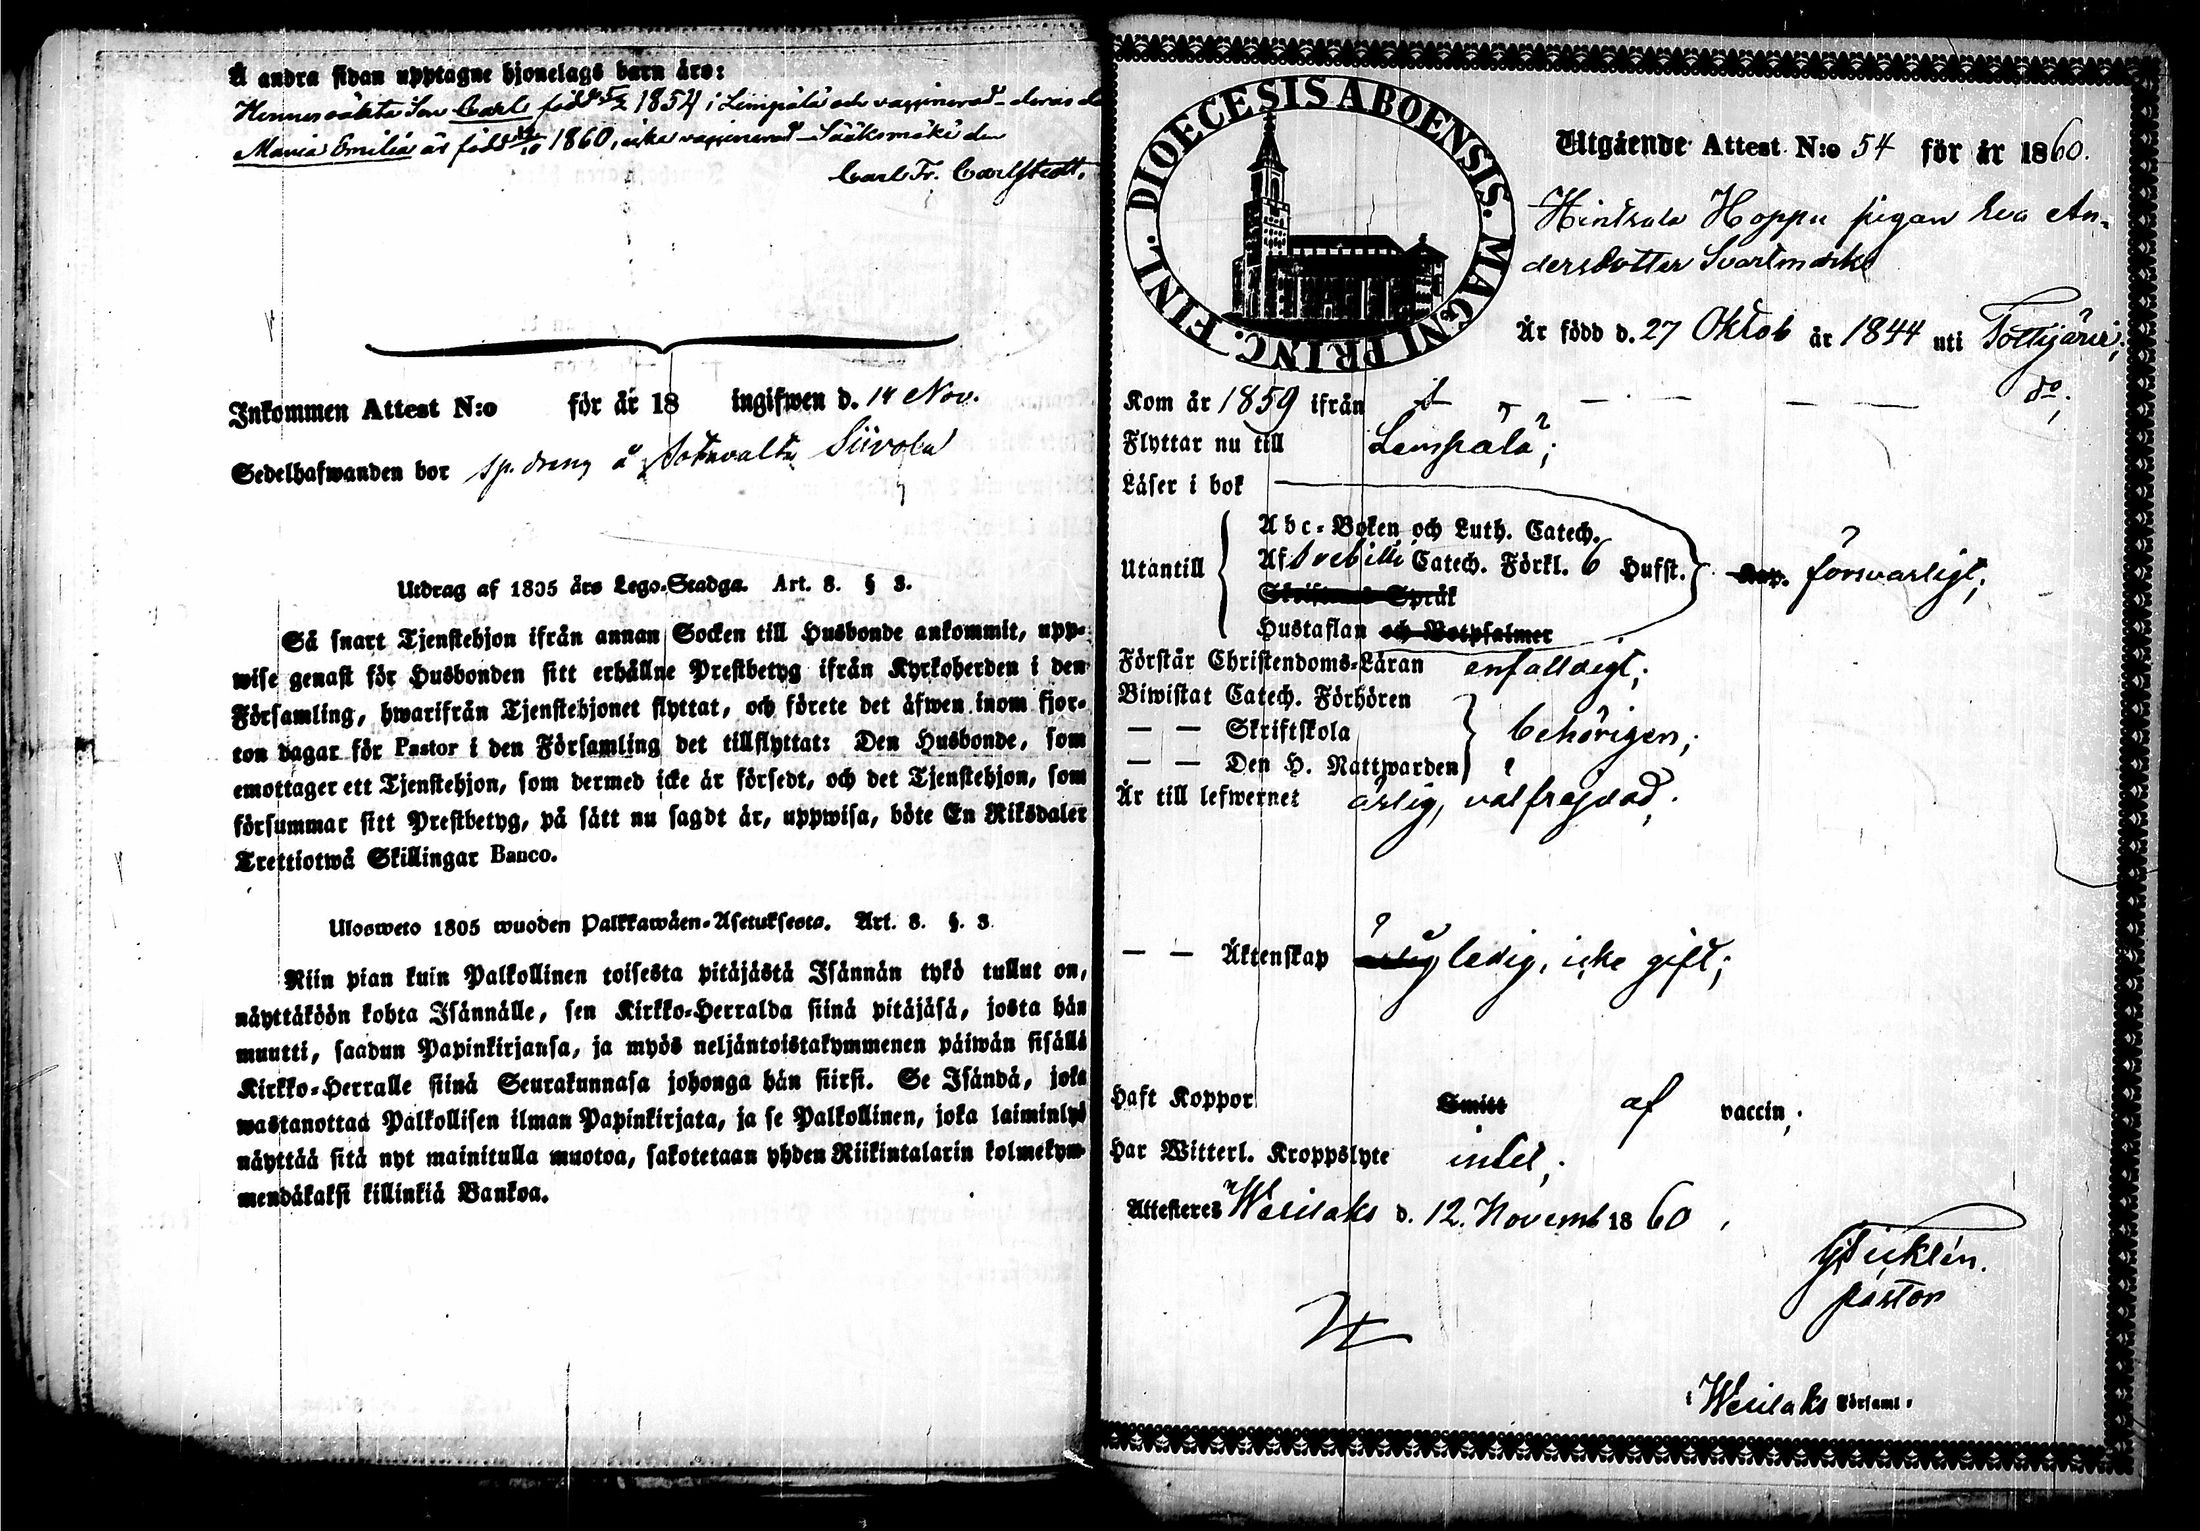 Å andra sidan upptagne hjonelags barn äro:
Hennes oäkta Son Carl född 5/2 1854 i Lempälä och vaccinerad - deras
Maria Emilia är född /10 1860, icke vaccinerad - Sääksmäki den
Carl Fr. Carlstedt.
Inkommen Attest N:o för år 18 ingifwen d. 14 Nov.
Sedelhafwanden bor sp. dreng å Sotavalta Siivola
Utdrag af 1805 års Lego-Stadga. Art. 8. § 3.
Så snart Tjenstehjon ifrån annan Socken till Husbonde ankommit, upp-
wise genast för Husbonden sitt erhållne Prestbetyg ifrån Kyrkoherden i den
Församling, hwarifrån Tjenstehjonet flyttat, och förete det äfwen inom fjor-
ton dagar för Pastor i den Församling det tillflyttat: Den Husbonde, som
emottager ett Tjenstehjon, som dermed icke är försedt, och det Tjenstehjon, som
försummar sitt Prestbetyg, på sätt nu sagdt är, uppwisa, böte En Riksdaler
Trettiotwå Skillingar Banco.
Ulosweto 1805 wuoden Palkkawäen-Asetuksesta. Art. 8. §. 3
Niin pian kuin Palkollinen toisesta pitäjästä Isännän tykö tullut on,
näyttäköön kohta Isännälle, sen Kirkko-Herralda siinä pitäjäsä, josta hän
muutti, saadun Papinkirjansa, ja myös neljäntoistakymmenen päiwän sisällä
Kirkko-Herralle siinä Seurakunnasa johonga hän siirsi. Se Isändä, joka
wastanottaa Palkollisen ilman Papinkirjata, ja se Palkollinen, joka laiminlyö
näyttää sitä nyt mainitulla muotoa, sakotetaan yhden Riikintalarin kolmekym-
mendäkaksi killinkiä Bankoa.
DIOECESIS ABOENSIS. MAGNI PRINC. FINL.
Utgående Attest N:o 54 för år 1860.
Hintsala Hoppu pigan Eva An-
dersdotter Svartmark
Är född d. 27 Oktob år 1844 uti Tottijärvi;
Kom år 1859 ifrån d:o;
Flyttar nu till Lempälä;
Läser i bok
Utantill
Abc-Boken och Luth. Catech.
Af Svebilii Catech. Förkl. 6 Hufst. Kap. försvarligt;
Skriftenes Språk
Hustaflan och Botpsalmer
Förstår Christendoms-Läran enfalldigt;
Biwistat Catech. Förhören
— — Skriftskola behörigen;
— — Den H. Nattwarden
Är till lefwernet ärlig, välfrejdad;
— — Äktenskap ledig, icke gift;
Haft Koppor Smitt af vaccin;
Har Witterl. Kroppslyte intet;
Attesteres Wesilaks d. 12. Novemb 1860,
pastor
i Wesilaks Församl.